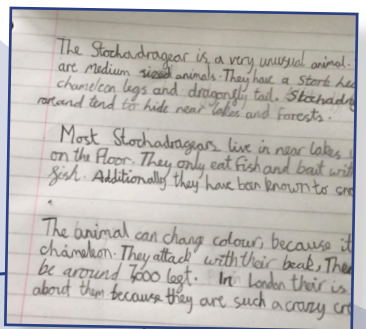 The Stochadragear is a very unusual animal.
are medium sized animals. They have a stork hea
chameleon legs and dragonfly tail. Stochadra
rare and tend to hide near lakes and forests.
Most Stochadragears live in near lakes
on the floor. They only eat fish and bait with
fish. Additionally they have been known to sna
The animal can change colour, because it
chameleon. They attack with their beak, Ther
be around 7,000 left. In London their is
about them because they are such a crazy cre